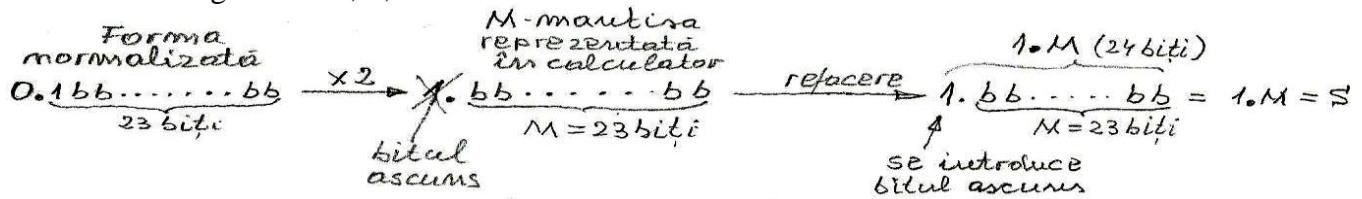 Forma
normalizată
0.1bb.......bb
23 biți
×2
1. bb......bb
M-mantisa
reprezentată
în calculator
M=23biți
bitul
ascuns
refacere
1.M (24 biți)
1. bb.....bb = 1.M = S
M=23biți
se introduce
bitul ascuns